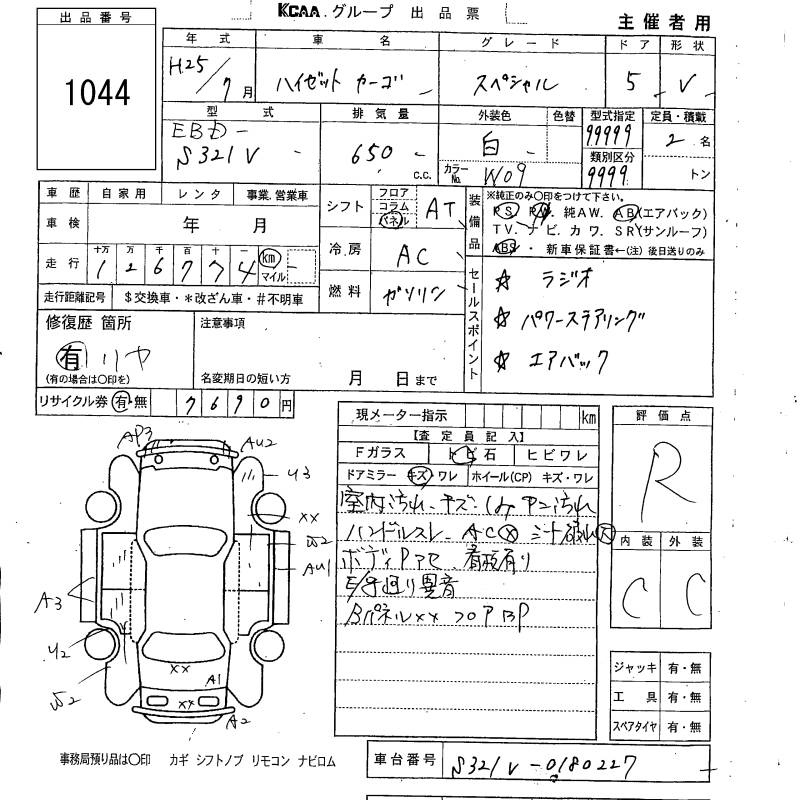 KCAA グループ 出品票
主催者用
出品番号
1044
年式 車名 グレード ドア 形状
H25/7月 ハイゼット カーゴ スペシャル 5 V
型式 排気量 外装色 色替 型式指定 定員・積載
EBD- 650 C.C. 白 99999 2名
S321V カラーNo. W09 類別区分 9999 トン
車歴 自家用 レンタ 事業.営業車
車検 年 月
走行 十万 万 千 百 十 一
126774 km マイル
走行距離記号 $交換車・*改ざん車・#不明車
シフト フロア コラム パネル AT
冷房 AC
燃料 ガソリン
装備品
※純正のみ〇印をつけて下さい。
PS PW. 純AW. AB(エアバック)
TV. ナビ. カワ. SR(サンルーフ)
ABS・新車保証書←(注)後日送りのみ
セールスポイント
☆ ラジオ
☆ パワーステアリング
☆ エアバック
修復歴 箇所
有 リヤ
(有の場合は〇印を)
注意事項
名変期日の短い方 月 日まで
リサイクル券 有・無 7690円
現メーター指示 km
【査定員記入】
Fガラス トビ石 ヒビワレ
ドアミラー キズ・ワレ ホイール(CP) キズ・ワレ
室内汚れ、キズ
ハンドルスレ AC✕
有り
異音
Bパネルxx フロアBP
評価点
R
内装 外装
C C
ジャッキ 有・無
工具 有・無
スペアタイヤ 有・無
AP3
AU2
U3
xx
W2
AU1
A3
U2
W2
xx
A1
xx
A2
事務局預り品は〇印 カギ シフトノブ リモコン ナビロム
車台番号 S321V-0180227